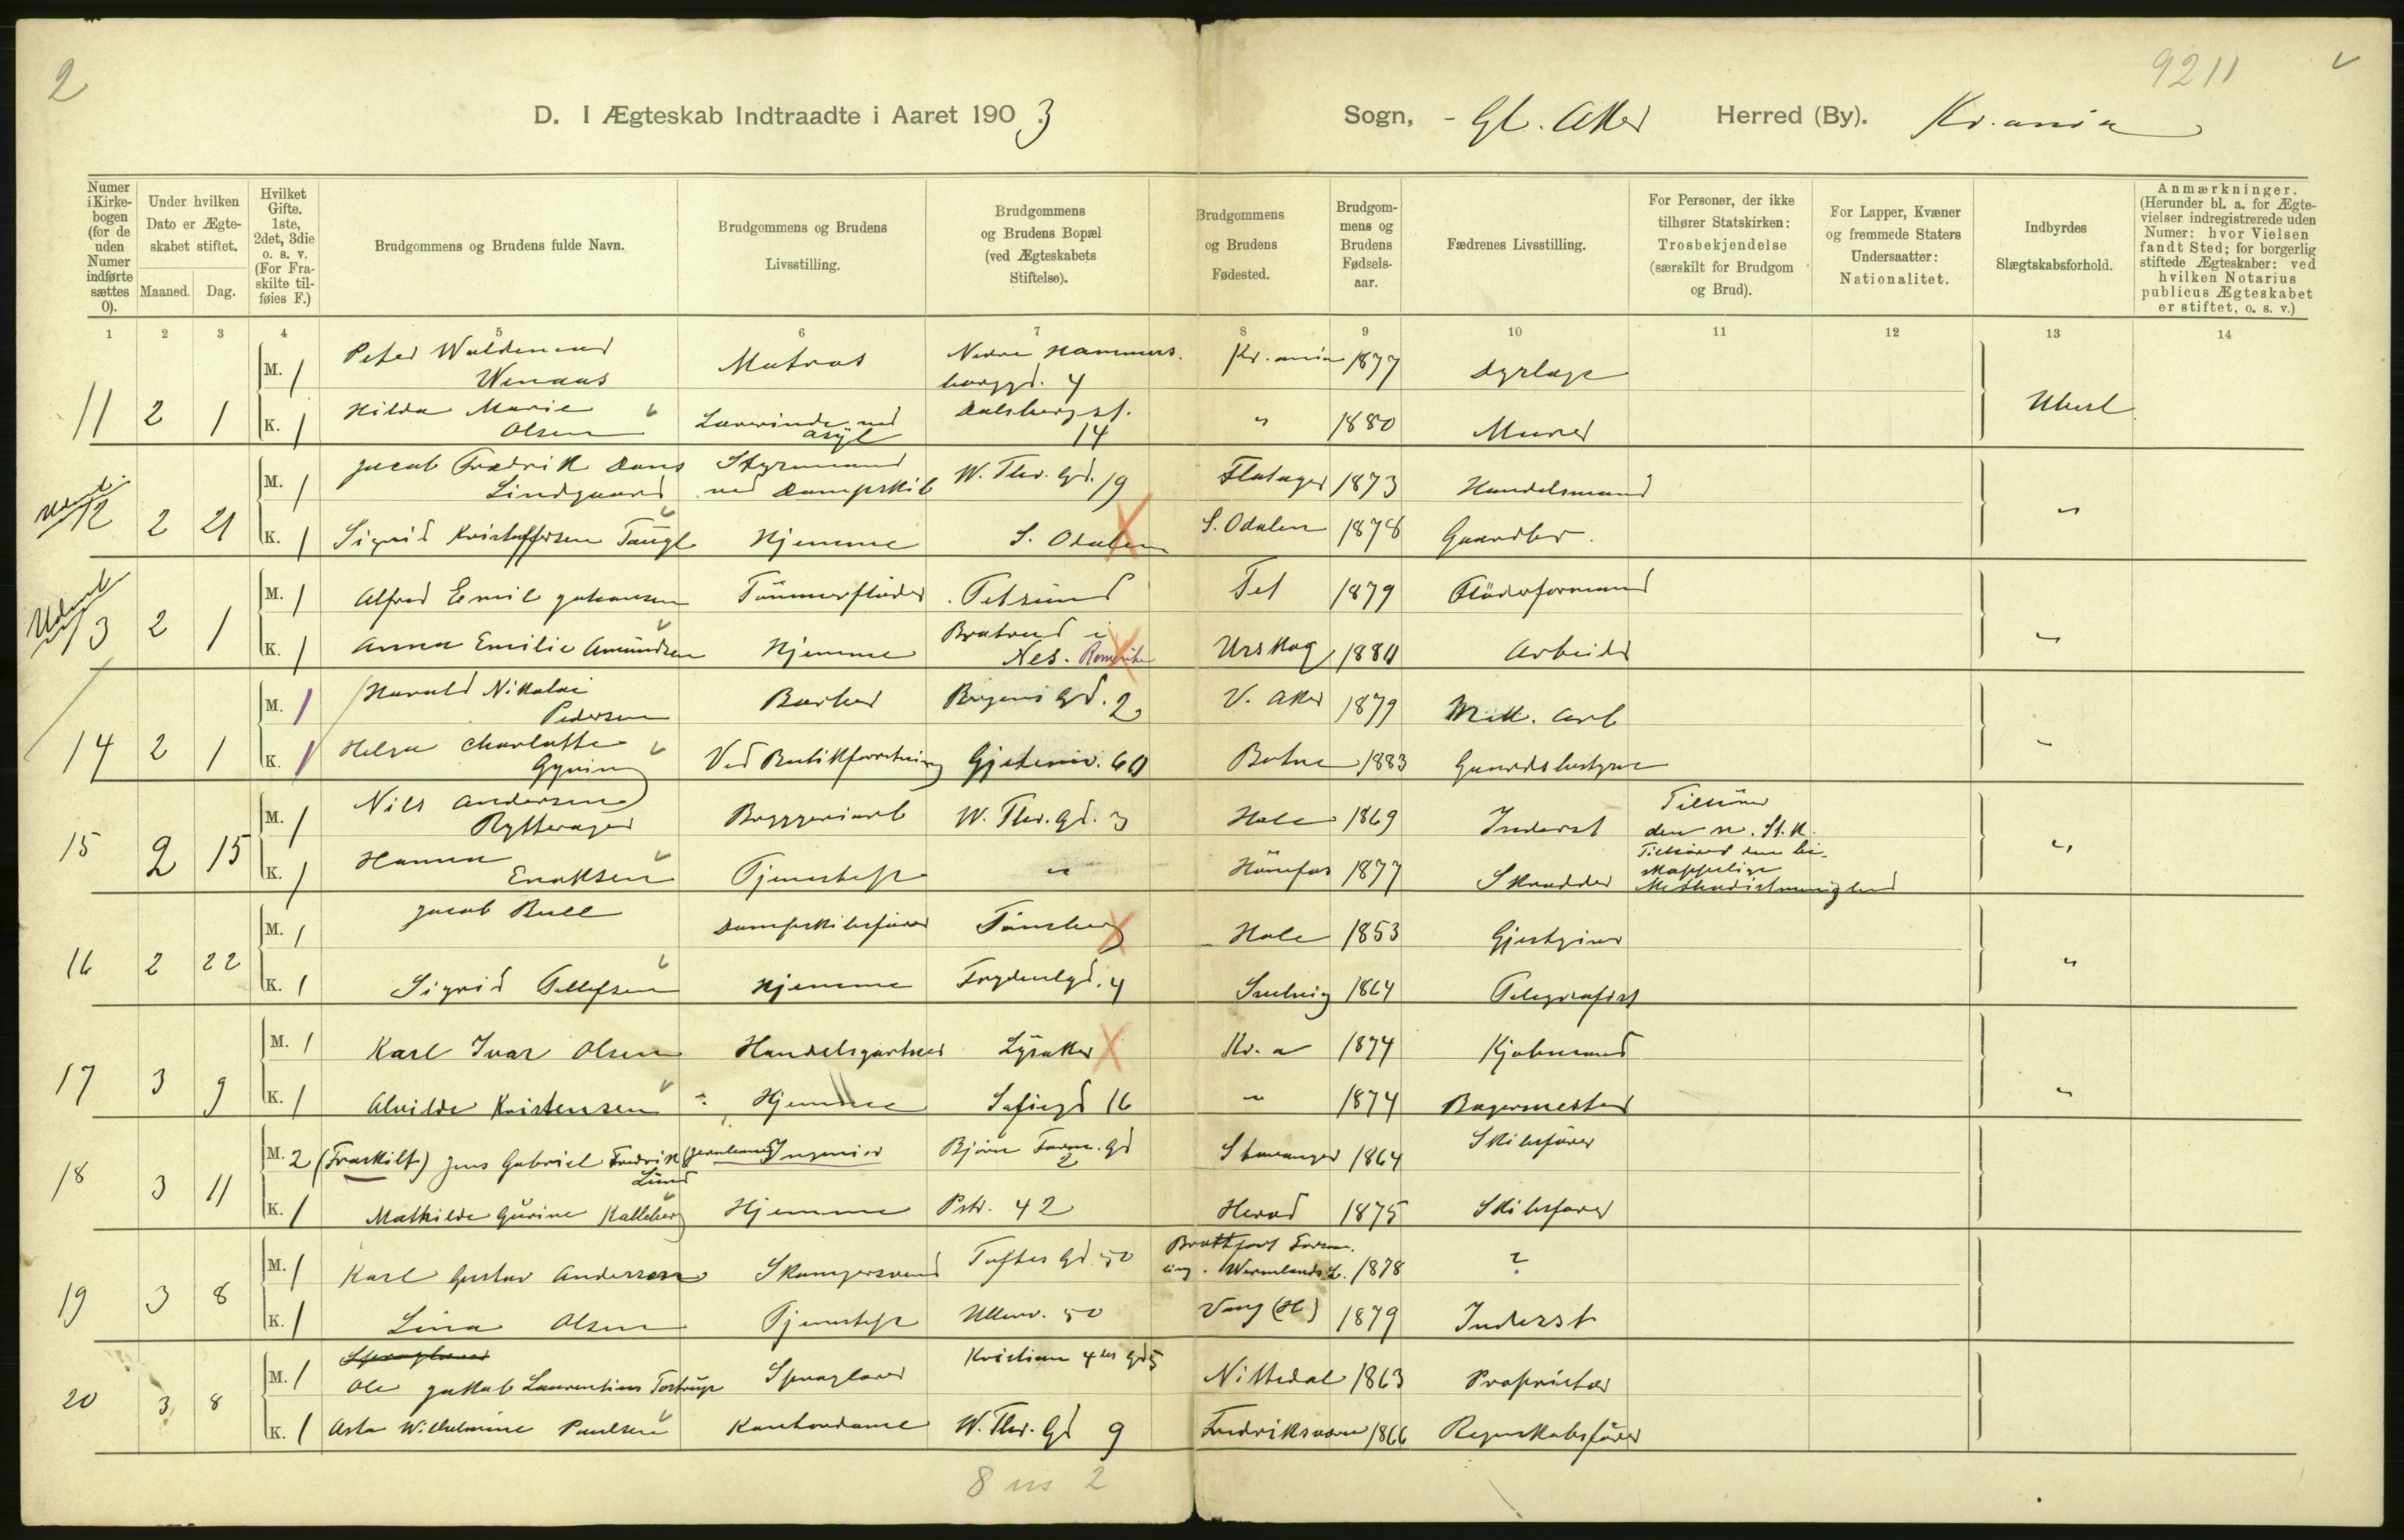 2
9211
D. I Ægteskab Indtraadte i Aaret 1903
Sogn, - Gl. Aker Herred (By). Kr.ania
Numer i Kirkebogen (for de uden Numer indførte sættes 0).
Under hvilken Dato er Ægteskabet stiftet.
Maaned. Dag.
Hvilket Gifte. 1ste, 2det, 3die o. s. v. (For Fraskilte tilføies F.)
Brudgommens og Brudens fulde Navn.
Brudgommens og Brudens Livsstilling.
Brudgommens og Brudens Bopæl (ved Ægteskabets Stiftelse).
Brudgommens og Brudens Fødested.
Brudgommens og Brudens Fødselsaar.
Fædrenes Livsstilling.
For Personer, der ikke tilhører Statskirken: Trosbekjendelse (særskilt for Brudgom og Brud).
For Lapper, Kvæner og fremmede Staters Undersaatter: Nationalitet.
Indbyrdes Slægtskabsforhold.
Anmærkninger. (Herunder bl. a. for Ægtevielser indregistrerede uden Numer: hvor Vielsen fandt Sted; for borgerlig stiftede Ægteskaber: ved hvilken Notarius publicus Ægteskabet er stiftet, o. s. v.)
1 2 3 4 5 6 7 8 9 10 11 12 13 14
M. 1 Peter Waldemar Wenaas Matros Nedre Hammersborggd. 4 Kr.ania 1877
11 2 1 Ubesl.
K. 1 Hilda Marie Olsen Lærerinde ved Asyl Dalsbergst. 14 " 1880 Murer
M. 1 Jacob Fredrik Dons Lindgaard Styrmand ved Dampskib W. Thr. Gd. 19 Flatager 1873 Handelsmand
12 2 21 "
K. 1 Sigrid Kristoffersen Hjemme S. Odalen S. Odalen 1878 Gaardbr.
M. 1 Alfred Emil Johansen Tömmerflöder Fetsund Fet 1879 Flöderformand
13 2 1 "
K. 1 Anna Emilie Amundsen Hjemme Nes. Romerike Urskog 1880 Arbeider
M. 1 Harald Nikolai Pedersen Barber Gd. 2 V. Aker 1879 Arb
14 2 1 "
K. 1 Helga Charlotte Ved Butikforretning Gjetemv. 60 Botne 1883 Gaardsbestyrer
M. 1 Nils Andersen Rytterager Bryggeriarb W. Thr. Gd. 3 Hole 1869 Inderst Tilhörer den n. St. K.
15 2 15 "
K. 1 Hanna Enoksen Tjenestepe " Hönefos 1877 Skrædder Tilhörer den biskoppelige Methodistmenighed
M. 1 Jacob Bull Dampskibsförer Tönsberg Hole 1853 Gjestgiver
16 2 22 "
K. 1 Sigrid Tellefsen Hjemme Frydenlgd. 4 Svelvig 1864 Telegrafist
M. 1 Karl Ivar Olsen Handelsgartner Lysaker Kr.a 1874 Kjøbmand
17 3 9 "
K. 1 Alvilde Kristensen Hjemme Sofiegd 16 " 1874 Bagermester
M. 2 (Fraskilt) Jens Gabriel Fredrik Lund Ingeniör Björn Farm. Gd 2 Stavanger 1864 Skibsförer
18 3 11
K. 1 Mathilde Gurine Kalleberg Hjemme Pstr. 42 Herad 1875 Skibsförer
M. 1 Karl Gustav Andersson Skomagersvend Toftes Gd. 50 Brattfors Försam. ling. Wermlands L. 1878 ?
19 3 8
K. 1 Lina Olsen Tjenestepe Ullevv. 50 Vang (H) 1879 Inderst
M. 1 Ole Jakob Laurentius Tostrup Sproglærer Kristian 4des Gd 5 Nittedal 1863 Proprietær
20 3 8
K. 1 Asta Wilhelmine Paulsen Kontordame W. Thr. Gd 9 Fredriksværn 1866 Regnskabsfører
8 us 2